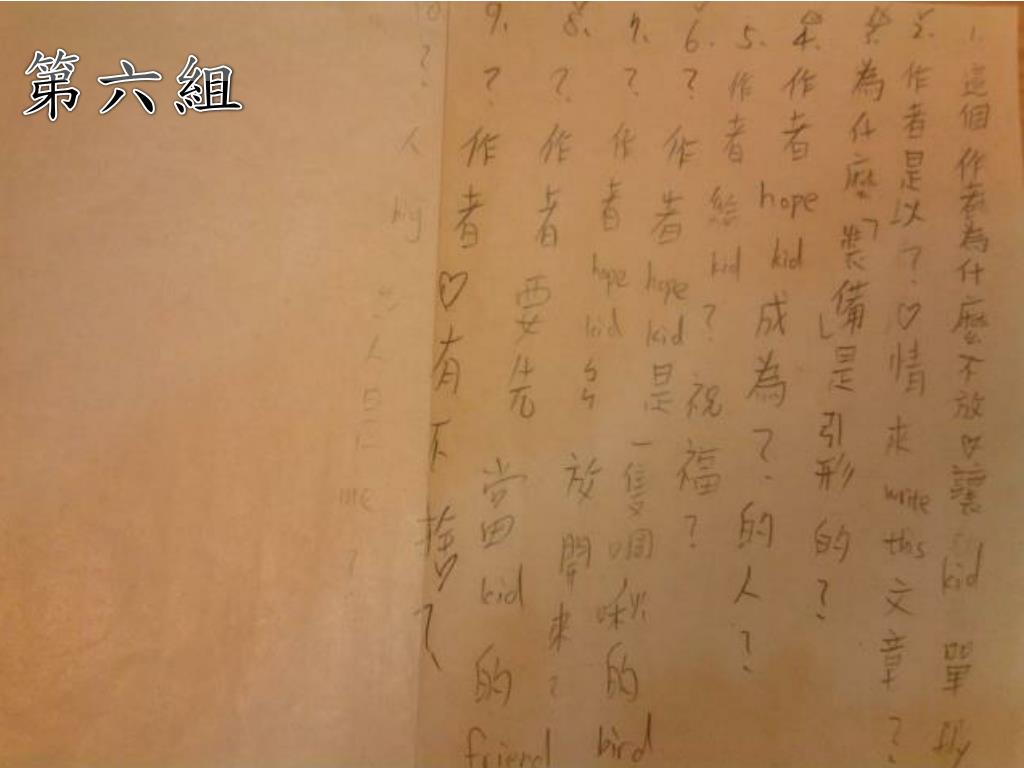 第六組
1. 這個作者為什麼不放♡讓 kid 單 fly
2. 作者是以?♡情來 write this 文章?
3. 為什麼「裝備」是引形的?
4. 作者 hope kid 成為?的人?
5. 作者給 kid ? 祝福?
6. ? 作者 hope kid 是一隻啁啾的 bird
7. ? 作者 hope kid 放開來?
8. ? 作者要先當 kid 的 friend
9. ? 作者♡有不捨?
10 ? 人 人是 me ?